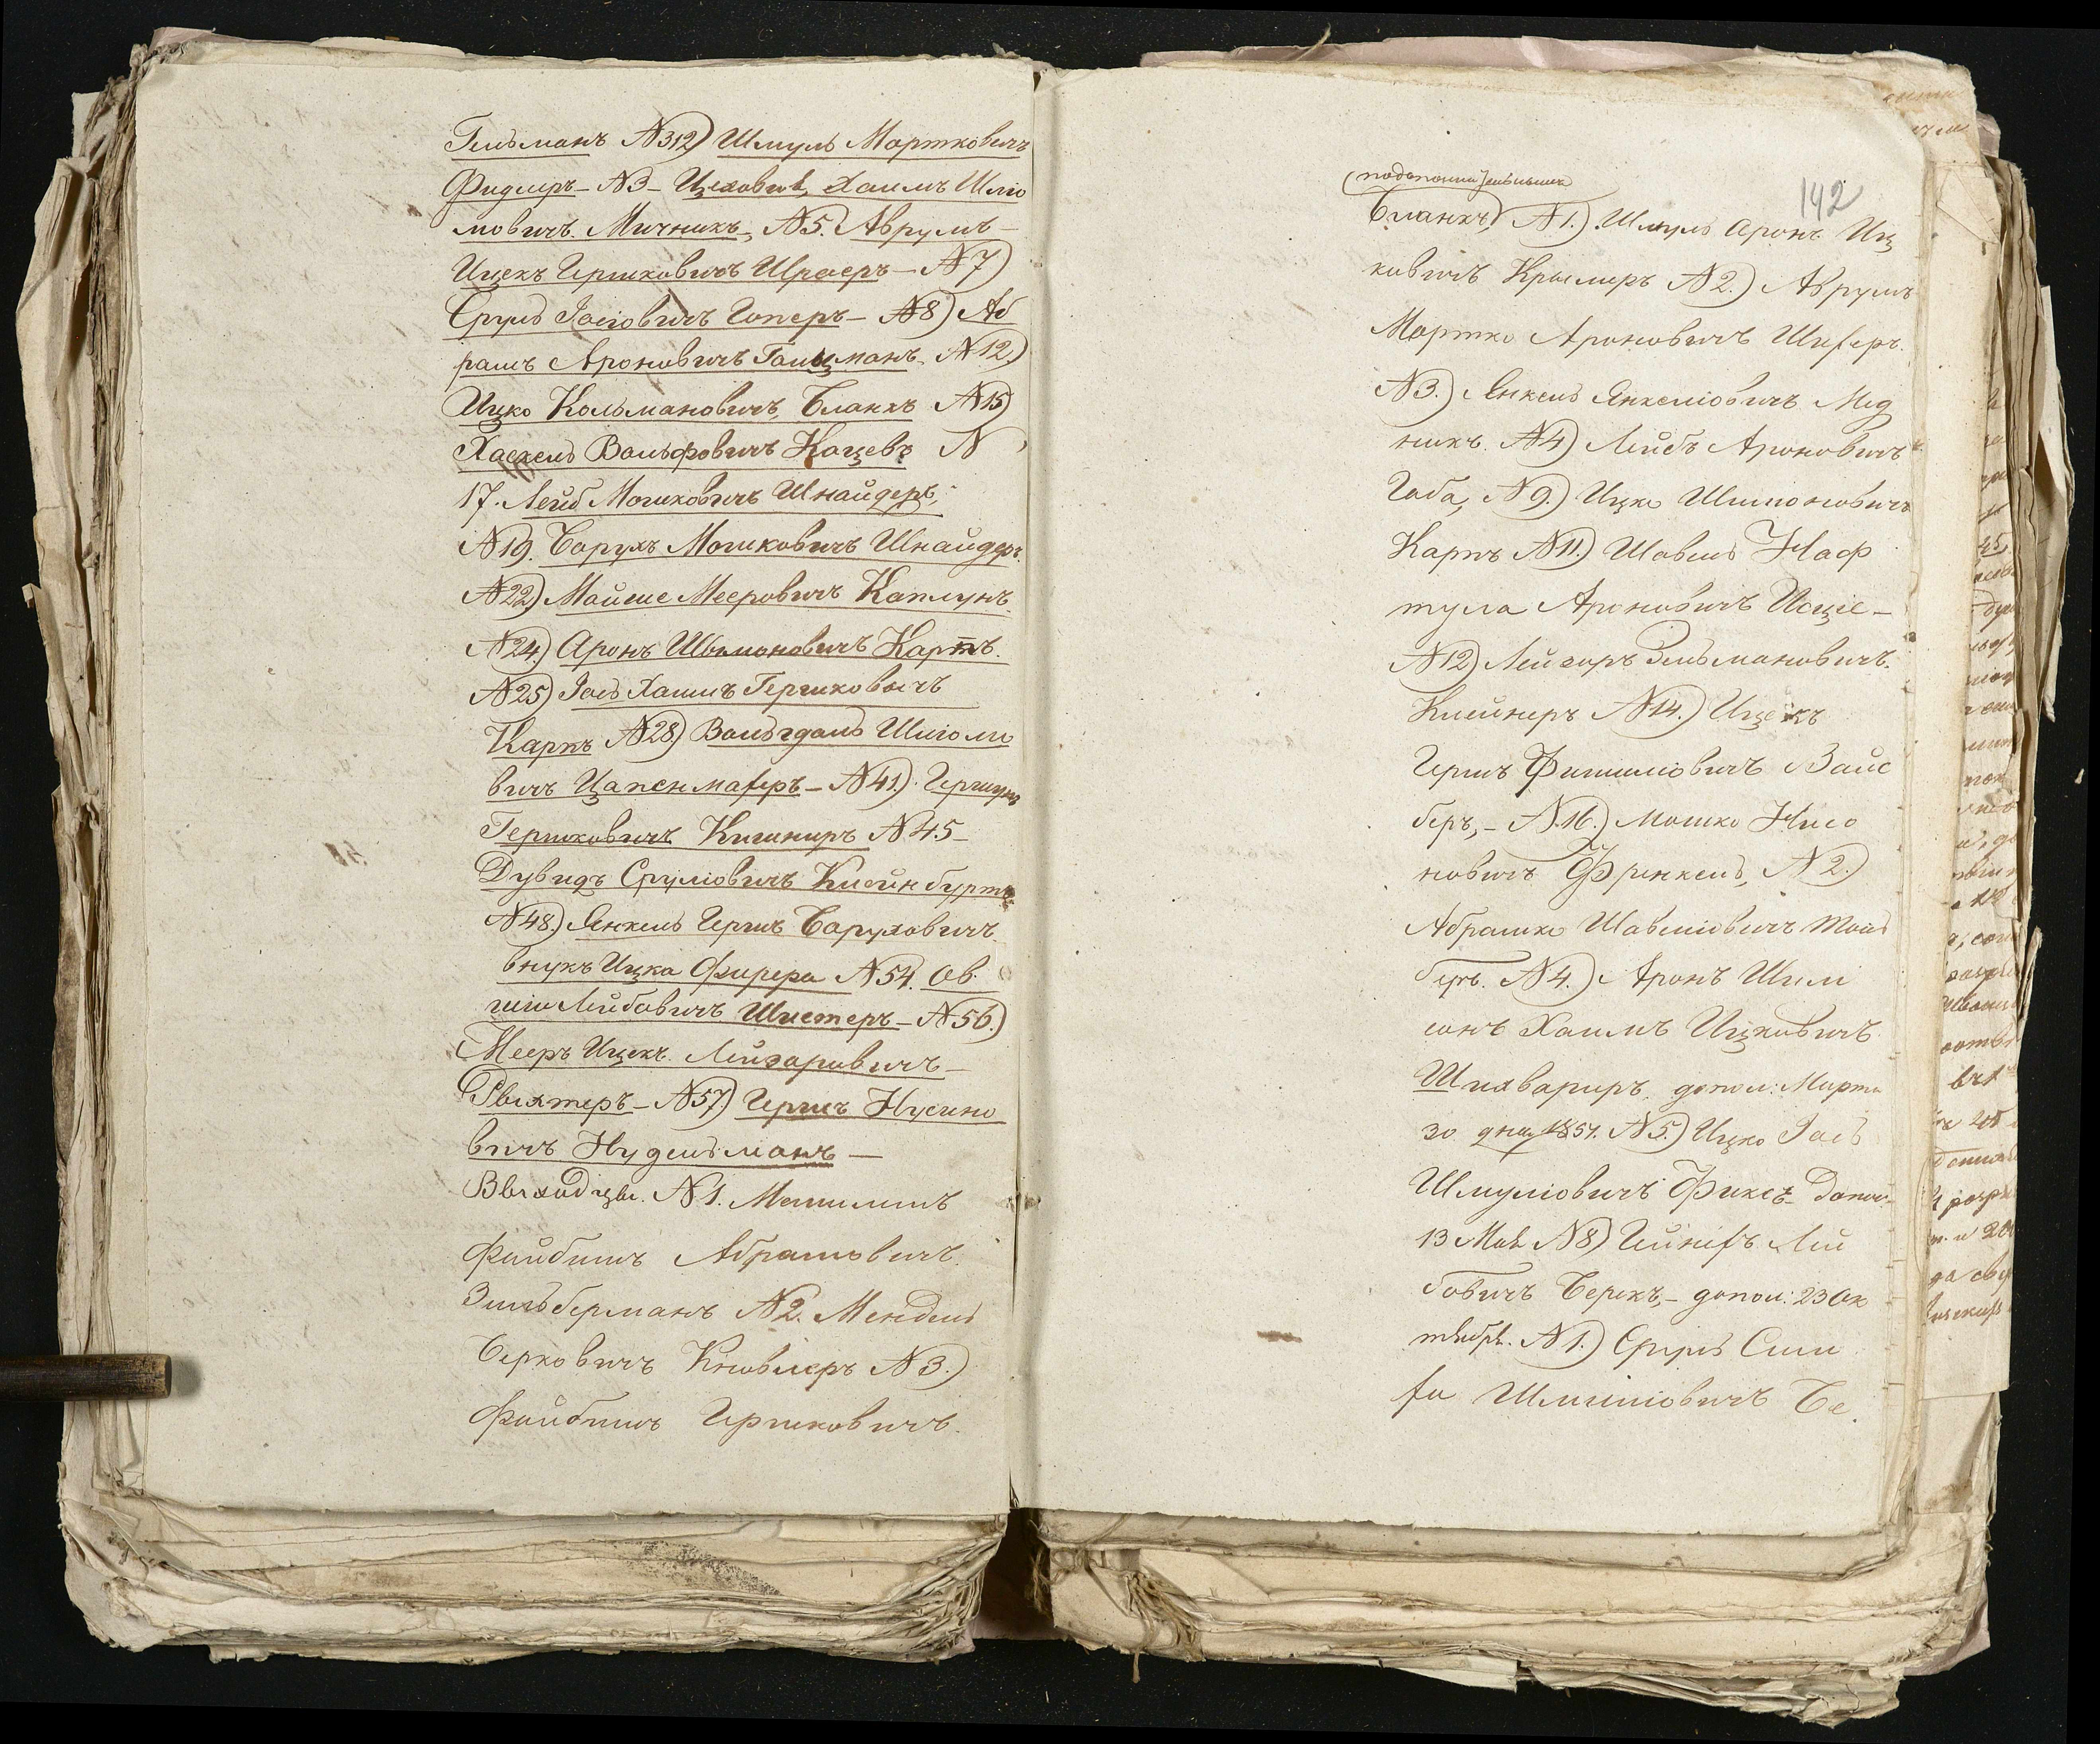 Гельманъ N312) Шмуль Мортковичъ
Фидлеръ - N3 - Цеховые, Хаимъ Шлио
мовичъ Мичникъ, N5. Аврумъ -
Ицекъ Гершковичъ Шраеръ - N7)
Сруль Іосіовичъ Гоперъ - N8) Аб
рамъ Ароновичъ Гоцманъ N12)
Ицко Кольмановичъ, Бланкъ N15)
Хаскель Вольфовичъ Кацевъ N
17. Лейб Мошковичъ Шнайдеръ,
N19. Борухъ Мошковичъ Шнайдеръ
N22) Мойше Мееровичъ Каплунъ
N24) Аронъ Шимоновичъ Карпъ.
N25) Іось Хаимъ Гершковичъ
Карпъ N28) Вольгдаль Шліоми
вичъ Цапенмахеръ - N41) Гершунъ
Гершковичъ Кишниръ N45 -
Дувидъ Сруліовичъ Клейнбуртъ
N48) Янкель Гершъ Боруховичъ
внукъ Ицка Фирера N54. Ов
шіо Лейбовичъ Шистеръ - N56.)
Мееръ Ицекъ Лейзаровичъ -
Рыхтеръ - N57) Гершъ Нусино
вичъ Нудельманъ -
Выходцы. N1.
Файбишъ Абрамовичъ
Зильберманъ N2. Мендель
Берковичъ Кновлеръ N3.)
Файбишъ Гершковичъ
142
Бланкъ) N1.) Шмуль Аронъ Иц
ковичъ Кремеръ N2.) Аврумъ
Мортко Ароновичъ Шиферъ.
N3.) Янкель Янкеліовичъ Мед
никъ. N4) Лейбъ Ароновичъ
Габа, N9.) Ицко Шимоновичъ
Карпъ N11.) Шовель Наф
тула Ароновичъ
N12) Лейзоръ Зельмановичъ.
Клейнеръ N14.) Ицекъ
Гершъ Фишиліовичъ Вайс
беръ, - N16.) Мошко Нисо
новичъ Френкель, N2.)
Абрамко Шавеліовичъ
N4.) Аронъ Шим
сонъ Хаимъ Ицковичъ
Шихвариръ, допол: Марта
30 дня 1851. N5.) Ицко Іось
Шмуліовичъ Фиксъ - Допол:
13 Мая N8) Лей
бовичъ Берекъ, - допол: 23 Ок
тября. N1.) Сруль Сим
ха Шмиліовичъ Бе.